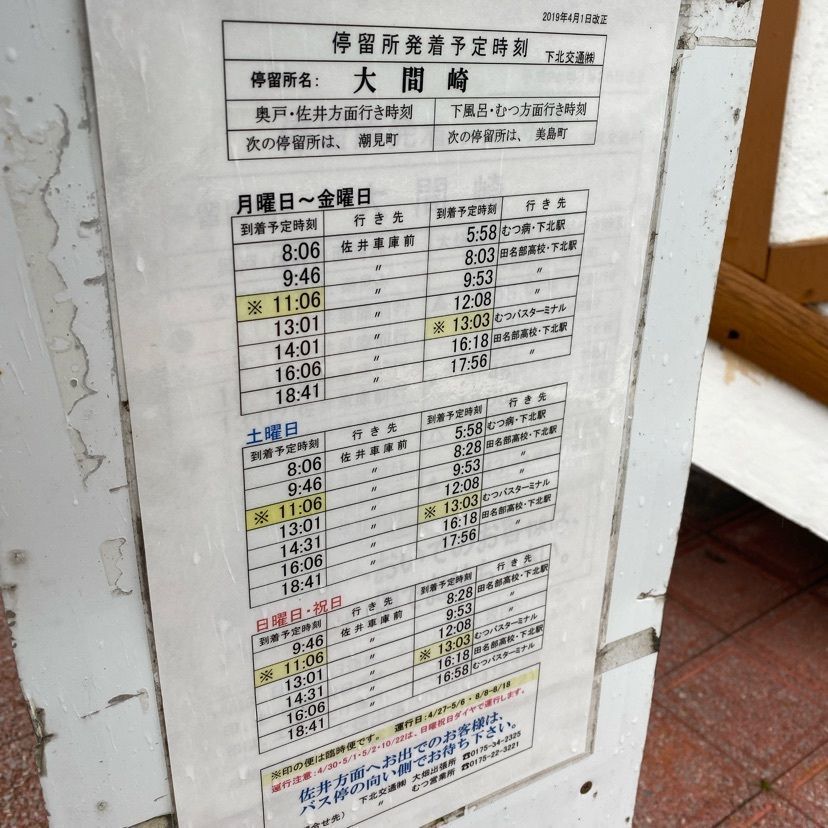 2019年4月1日改正
停留所発着予定時刻 下北交通㈱
停留所名: 大間崎
奥戸・佐井方面行き時刻 下風呂・むつ方面行き時刻
次の停留所は、 潮見町 次の停留所は、 美島町
月曜日～金曜日
到着予定時刻 行き先 到着予定時刻 行き先
8:06 佐井車庫前 5:58 むつ病・下北駅
9:46 〃 8:03 田名部高校・下北駅
※ 11:06 〃 9:53 〃
13:01 〃 12:08 〃
14:01 〃 ※ 13:03 むつバスターミナル
16:06 〃 16:18 田名部高校・下北駅
18:41 〃 17:56 〃
土曜日
到着予定時刻 行き先 到着予定時刻 行き先
8:06 佐井車庫前 5:58 むつ病・下北駅
9:46 〃 8:28 田名部高校・下北駅
※ 11:06 〃 9:53 〃
13:01 〃 12:08 〃
14:31 〃 ※ 13:03 むつバスターミナル
16:06 〃 16:18 田名部高校・下北駅
18:41 〃 17:56 〃
日曜日・祝日
到着予定時刻 行き先 到着予定時刻 行き先
9:46 佐井車庫前 8:28 田名部高校・下北駅
※ 11:06 〃 9:53 〃
13:01 〃 12:08 〃
14:31 〃 ※ 13:03 むつバスターミナル
16:06 〃 16:18 田名部高校・下北駅
18:41 〃 16:58 むつバスターミナル
※印の便は臨時便です。 運行日:4/27-5/6・8/8-8/18
運行注意:4/30・5/1・5/2・10/22は、日曜祝日ダイヤで運行します。
佐井方面へお出でのお客様は、
バス停の向い側でお待ち下さい。
合せ先) 下北交通㈱ 大畑出張所 ☎0175-34-2325
〃 むつ営業所 ☎0175-22-3221